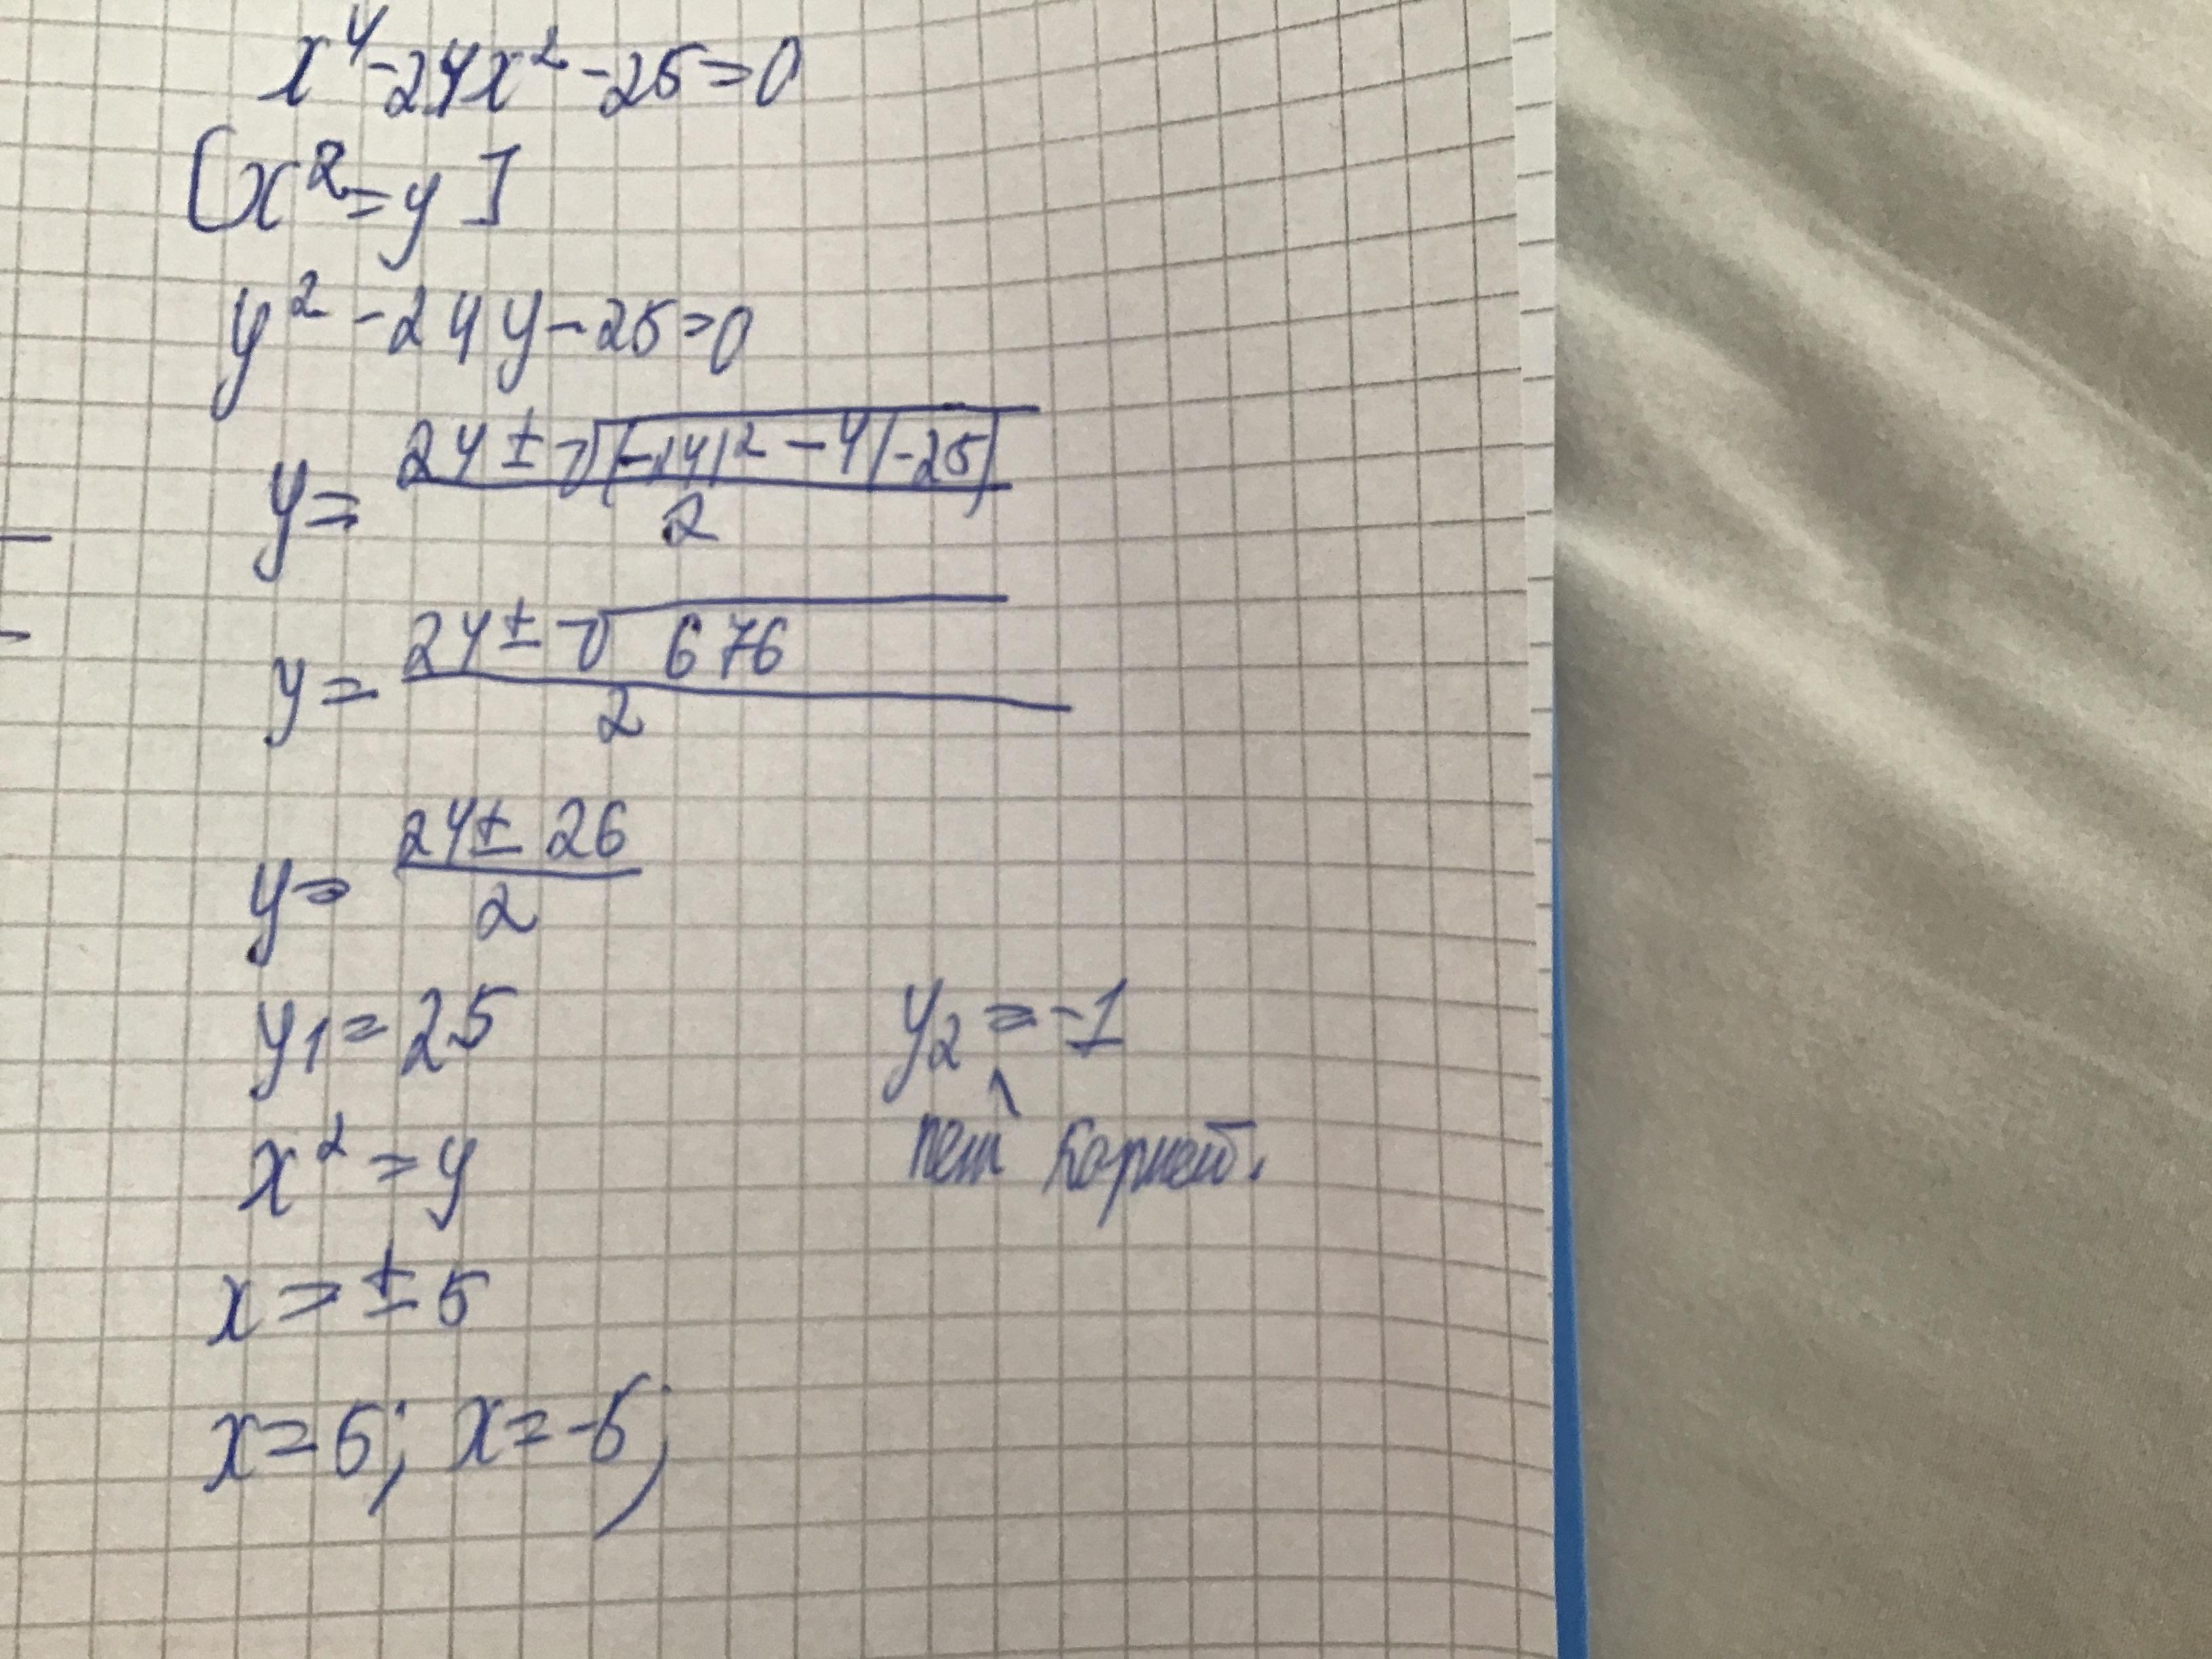 x⁴-24x²-25=0
[x²=y]
y²-24y-25=0
y= 24±√(-24)²-4(-25)
2
y= 24±√676
2
y= 24±26
2
y1=25 y2=-1
x²=y нет корней.
x=±5
x=5; x=-5;